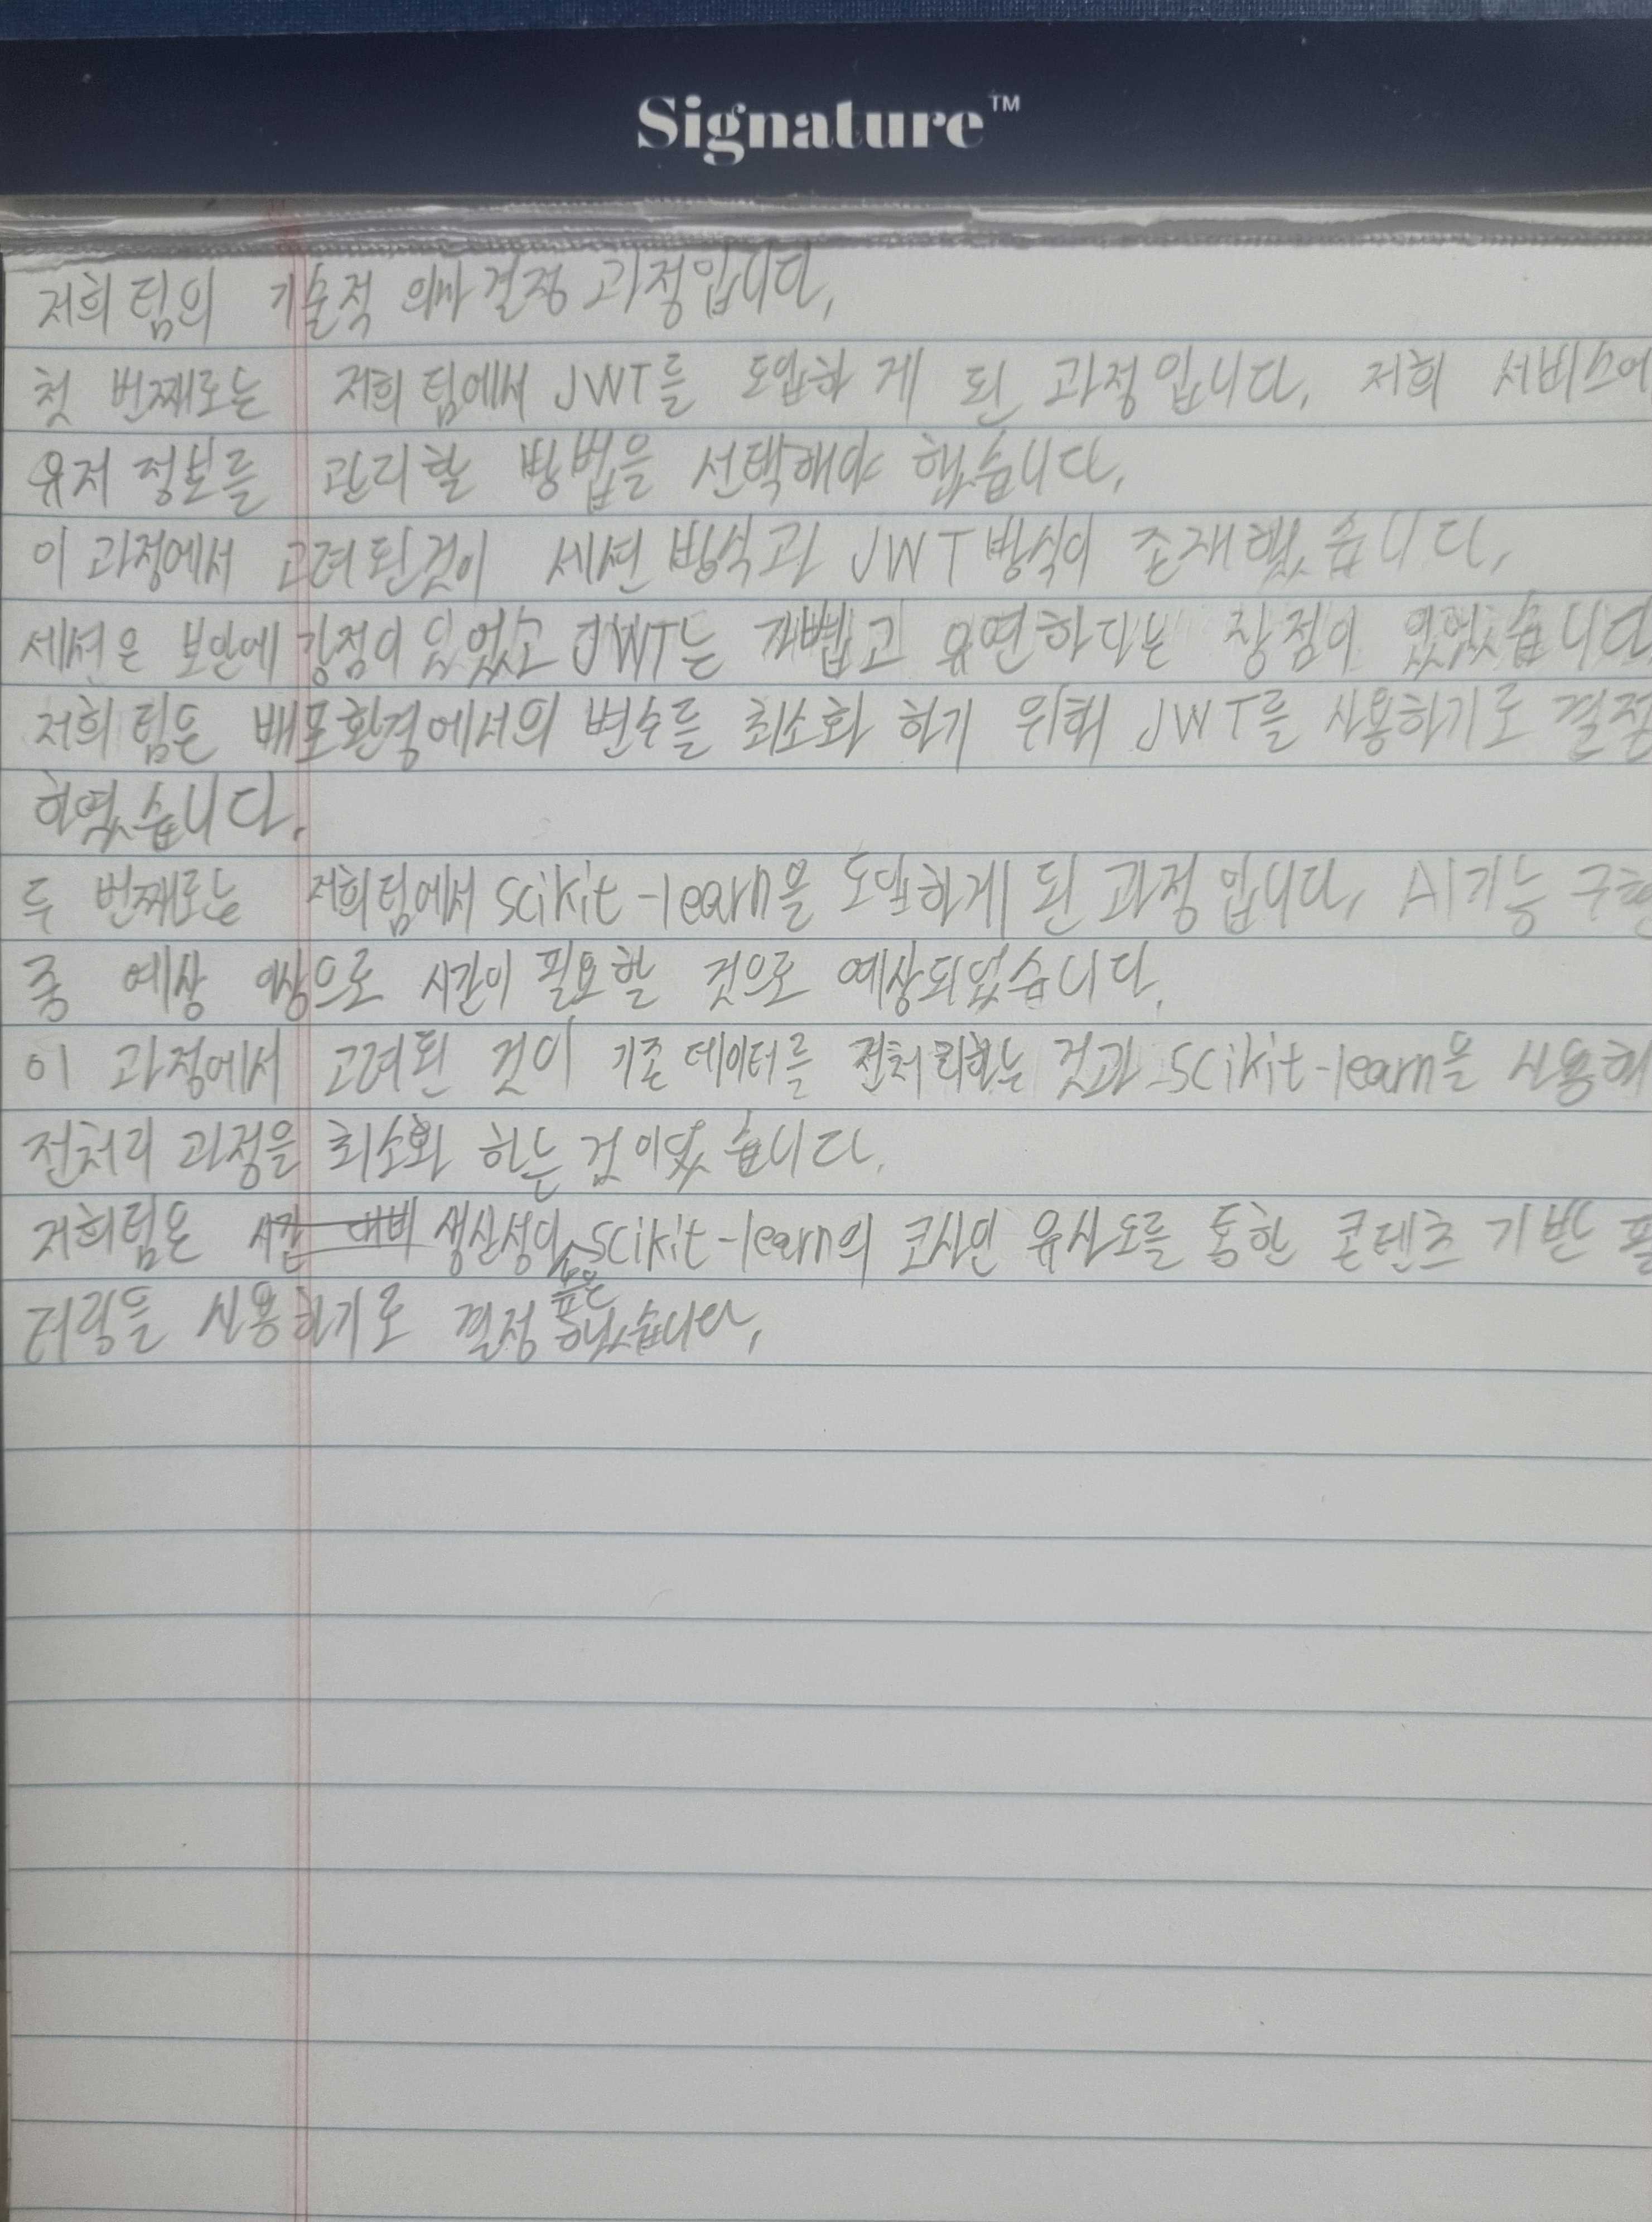 Signature™
저희 팀의 기술적 의사 결정 과정입니다.
첫 번째로는 저희 팀에서 JWT를 도입하게 된 과정입니다. 저희 서비스에
유저 정보를 관리할 방법을 선택해야 했습니다.
이 과정에서 고려된것이 세션 방식과 JWT 방식이 존재했습니다.
세션은 보안에 강점이 있었고 JWT는 가볍고 유연하다는 장점이 있었습니다
저희 팀은 배포환경에서의 변수를 최소화 하기 위해 JWT를 사용하기로 결정
하였습니다.
두 번째로는 저희팀에서 scikit-learn을 도입하게 된 과정 입니다. AI기능 구현
중 예상 으로 시간이 필요할 것으로 예상되었습니다.
이 과정에서 고려된 것이 기존 데이터를 전처리하는 것과 scikit-learn을 사용해
전처리 과정을 최소화 하는 것이었습니다.
저희팀은 시간 대비 생산성이 높은 scikit-learn의 코사인 유사도를 통한 콘텐츠 기반 필
터링을 사용하기로 결정 했습니다.